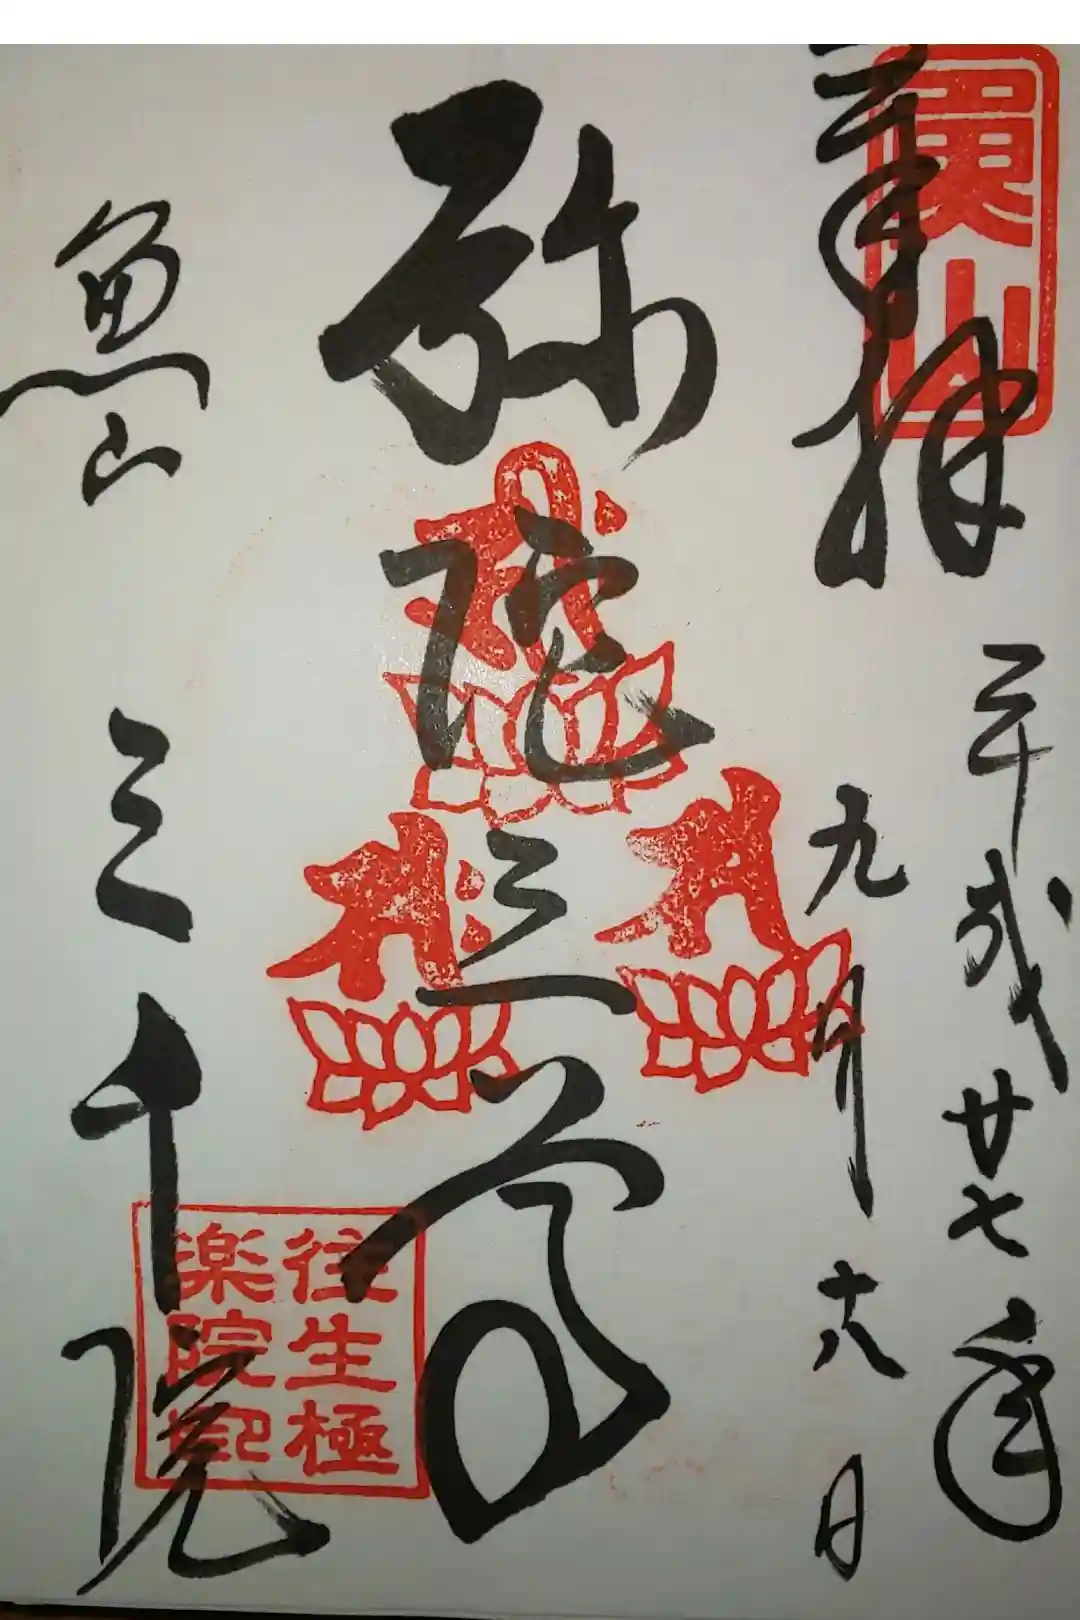 奉拝
平成廿七年
九月十八日
弥陀三尊
魚山
三千院
魚山
往生極
楽院印